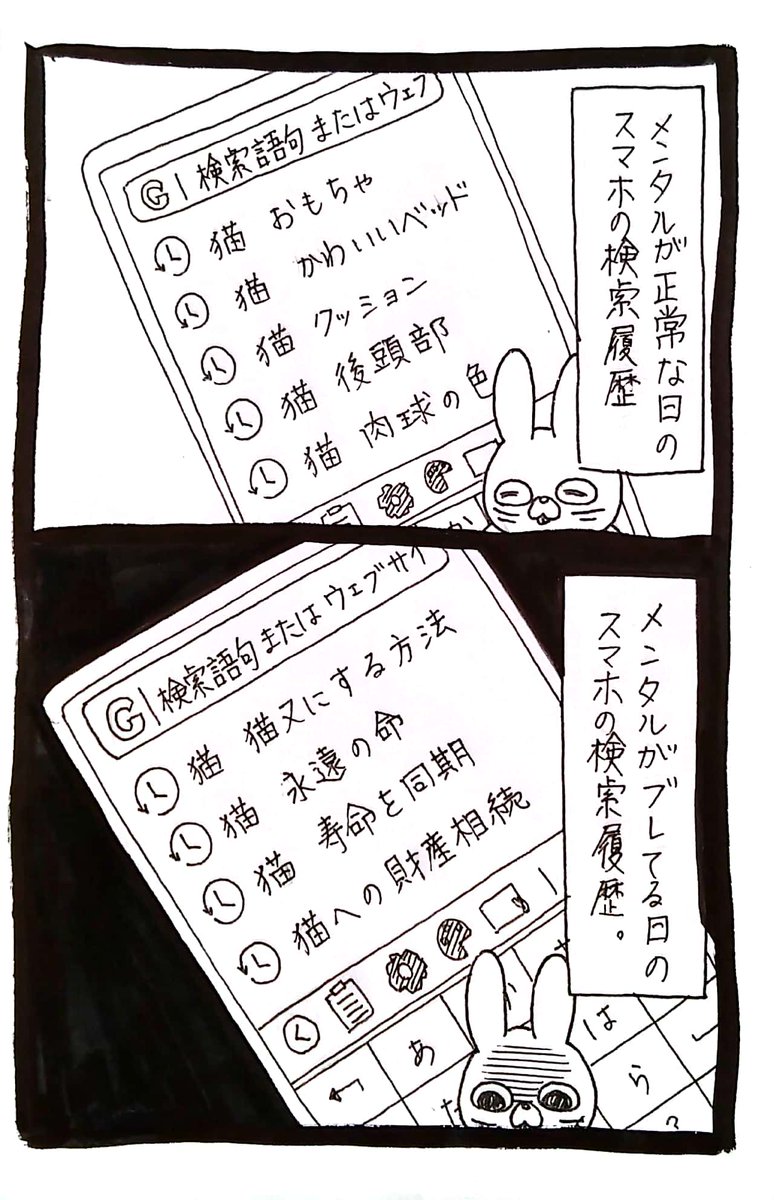 メンタルが正常な日の
スマホの検索履歴
G| 検索語句 またはウェブ
猫 おもちゃ
猫 かわいいベッド
猫 クッション
猫 後頭部
猫 肉球の色
か
メンタルがブレてる日の
スマホの検索履歴。
G| 検索語句 または ウェブサイ
猫 猫又にする方法
猫 永遠の命
猫 寿命を同期
猫への財産相続
あ
は
ら